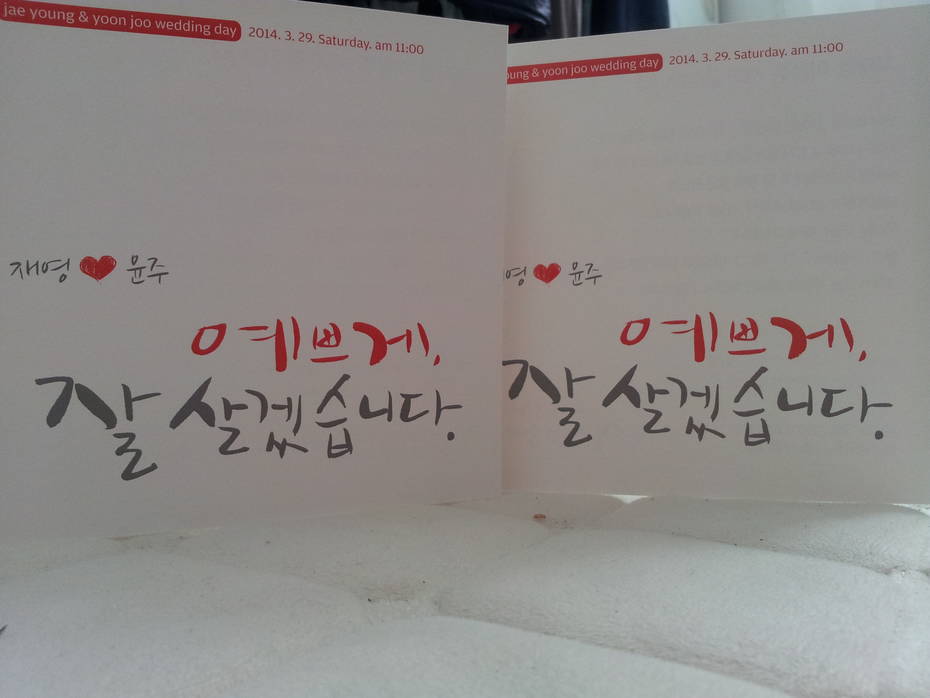 jae young & yoon joo wedding day 2014. 3. 29. Saturday. am 11:00
재영 ♥ 윤주
예쁘게,
잘 살겠습니다.
young & yoon joo wedding day 2014. 3. 29. Saturday. am 11:00
영 ♥ 윤주
예쁘게,
잘 살겠습니다.